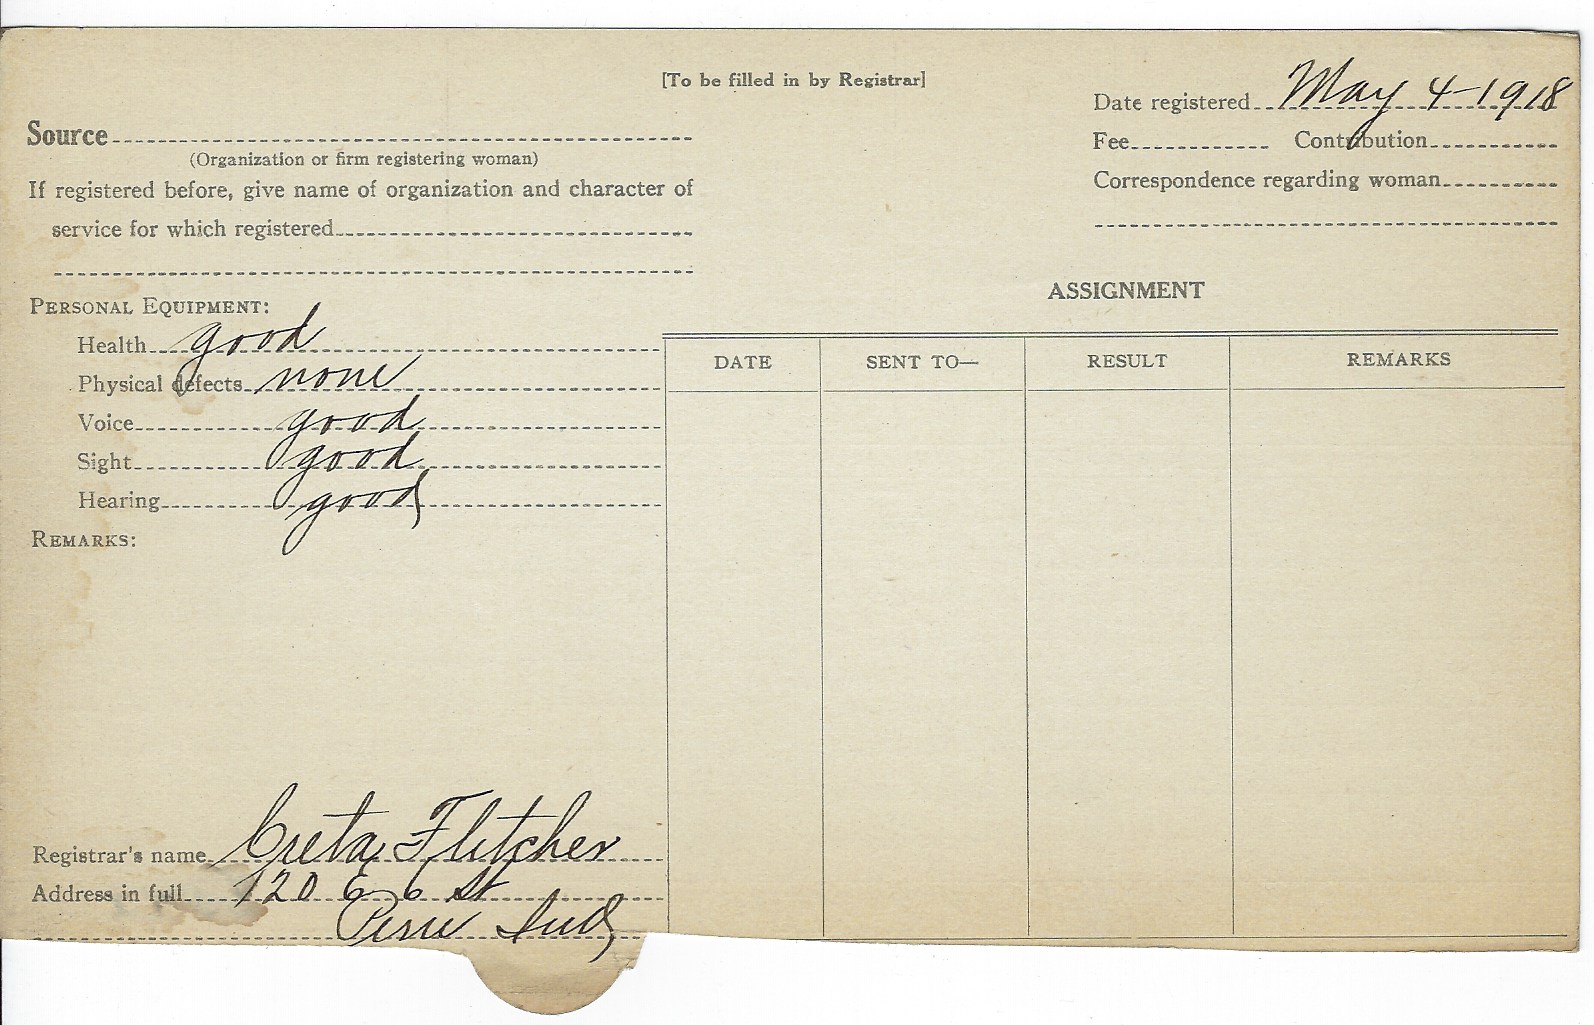 [To be filled in by Registrar]
Date registered May 4-1918
Source
(Organization or firm registering woman)
Fee Contribution
If registered before, give name of organization and character of
service for which registered
Correspondence regarding woman
ASSIGNMENT
PERSONAL EQUIPMENT:
Health good
Physical defects none
Voice good
Sight good
Hearing good
REMARKS:
DATE SENT TO— RESULT REMARKS
Registrar's name Creta Fletcher
Address in full 120 E 6 St
Peru Ind